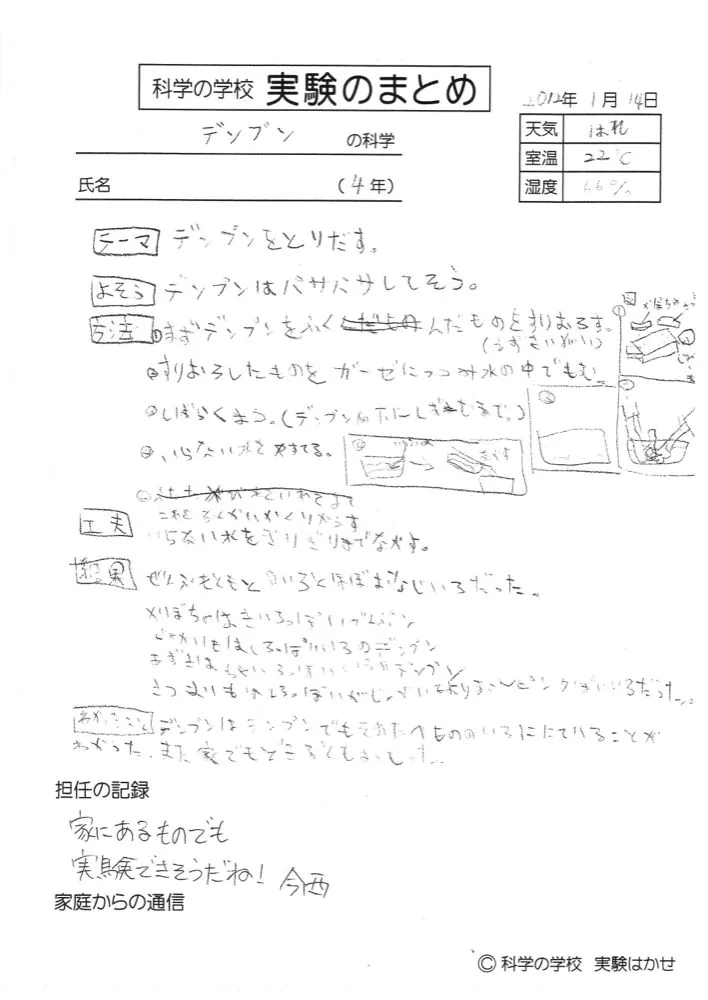 科学の学校 実験のまとめ
2012年 1月 14日
デンプン の科学
天気 はれ
室温 22℃
湿度 66%
氏名 (4年)
テーマ デンプンをとりだす。
よそう デンプンはパサパサしてそう。
方法 ①まずデンプンをふくんだものをすりおろす。
②すりおろしたものをガーゼにつつみ水の中でもむ。
③しばらくまつ。(デンプンが下にしずむまで。)
④いらない水をすてる。
これを
工夫 いらない水をぎりぎりまでながす。
結果 ぜんぶもともとのいろとほぼおなじいろだった。
かぼちゃはきいろっぽいデンプン
じゃがいもはしろっぽいいろのデンプン
あずきはちゃいろっぽい デンプン
さつまいもはしろっぽい ピンク いろだった。
わかったこと デンプンはデンプンでもそのたべもののいろににていることが
わかった。また家でも
担任の記録
家にあるものでも
実験できそうだね! 今西
家庭からの通信
© 科学の学校 実験はかせ